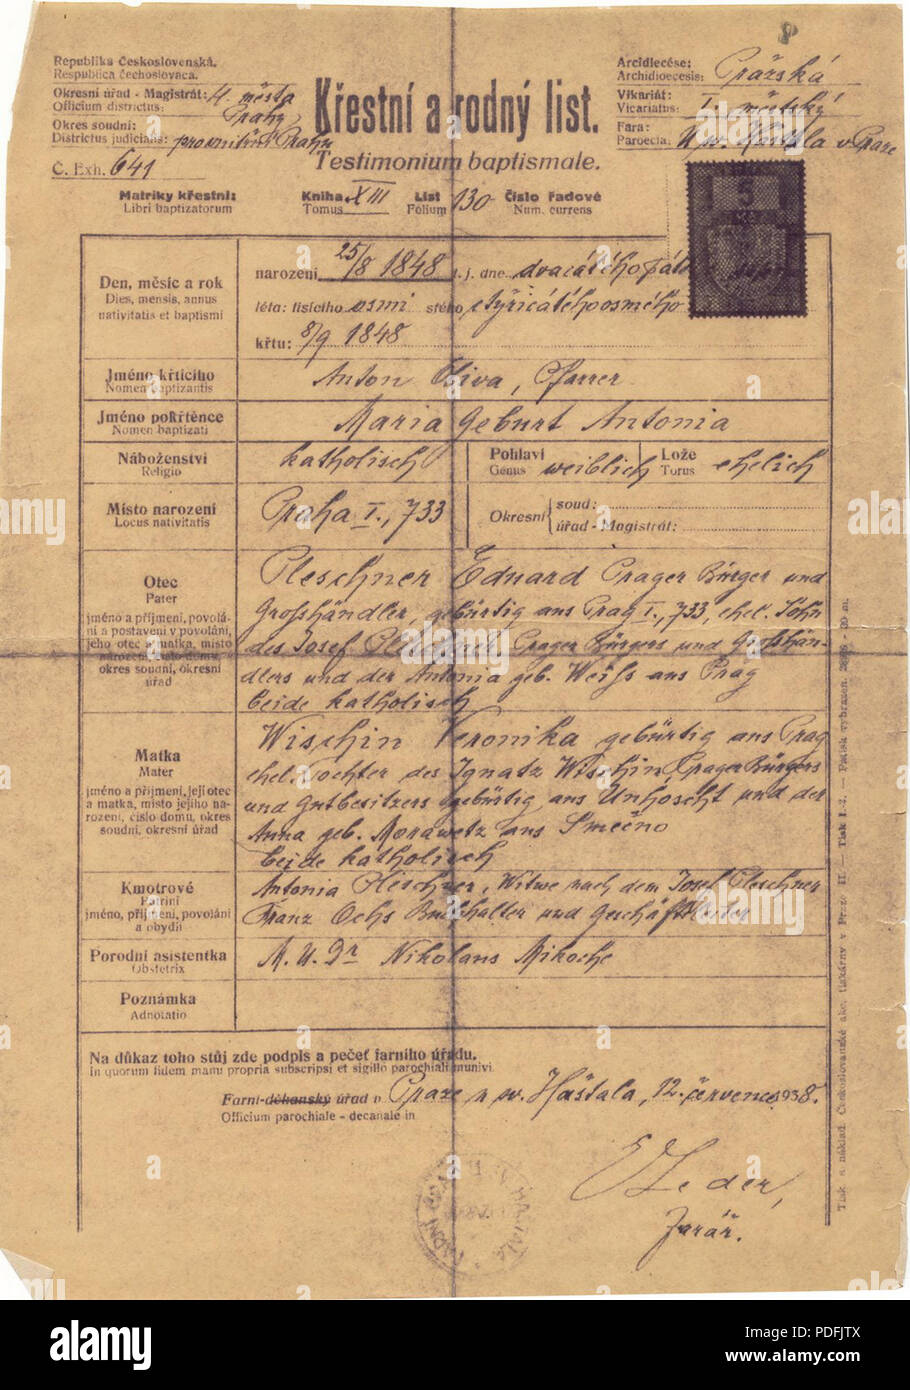 Republika Československá.
Respublica čechoslovaca.
Okresní úřad - Magistrát: H. města
Officium districtus: Prahy,
Okres soudní:
Districtus judicialis: pro vnitřní Prahu
Č. Exh. 641
Křestní a rodný list.
Testimonium baptismale.
Arcidiecése:
Archidioecesis: Pražská
Vikariát:
Vicariatus: I. městský
Fara:
Paroecia: u sv. Haštala v Praze
Matriky křestní:
Libri baptizatorum
Kniha XIII List 130 Číslo řadové
Tomus Folium Num. currens
5
Den, měsíc a rok
Dies, mensis, annus
nativitatis et baptismi
narození 25/8 1848 t. j. dne dvacátého pátého
léta: tisícího osmi stého čtyřicátého osmého
křtu: 8/9 1848
Jméno křticího
Nomen baptizantis
Anton Oliva, Pfarrer
Jméno pokřtěnce
Nomen baptizati
Maria Geburt Antonia
Náboženství
Religio
katholisch
Pohlaví
Genus weiblich
Lože
Torus ehelich
Místo narození
Locus nativitatis
Praha I., 733
Okresní
soud:
úřad - Magistrát:
Otec
Pater
jméno a příjmení, povolá-
ní a postavení v povolání,
jeho otec a matka, místo
narození, číslo domu,
okres soudní, okresní
úřad
Pleschner Eduard Prager Bürger und
Großhändler, gebürtig aus Prag I., 733, ehel. Sohn
des Josef Pleschner, Prager Bürgers und Großhän-
dlers und der Antonia geb. Weiss aus Prag
beide katholisch
Matka
Mater
jméno a příjmení, její otec
a matka, místo jejího na-
rození, číslo domu, okres
soudní, okresní úřad
Wischin Veronika gebürtig aus Prag
ehel. Tochter des Ignatz Wischin, Prager Bürgers
und Gutbesitzers gebürtig aus Unhoscht und der
Anna geb. Morawetz aus Smečno
beide katholisch
Kmotrové
Patrini
jméno, příjmení, povolání
a obydlí
Antonia Pleschner, Witwe nach dem Josef Pleschner
Franz Ochs Buchhalter und Geschäftsleiter
Porodní asistentka
Obstetrix
M. U. Dr Nikolaus Mikoche
Poznámka
Adnotatio
Na důkaz toho stůj zde podpis a pečeť farního úřadu.
In quorum fidem manu propria subscripsi et sigillo parochiali munivi.
Farní-děkanský úřad v Praze u sv. Haštala, 12. července 1938.
Officium parochiale - decanale in
Leder,
farář.
alamy
Image ID: PDFJTX
www.alamy.com